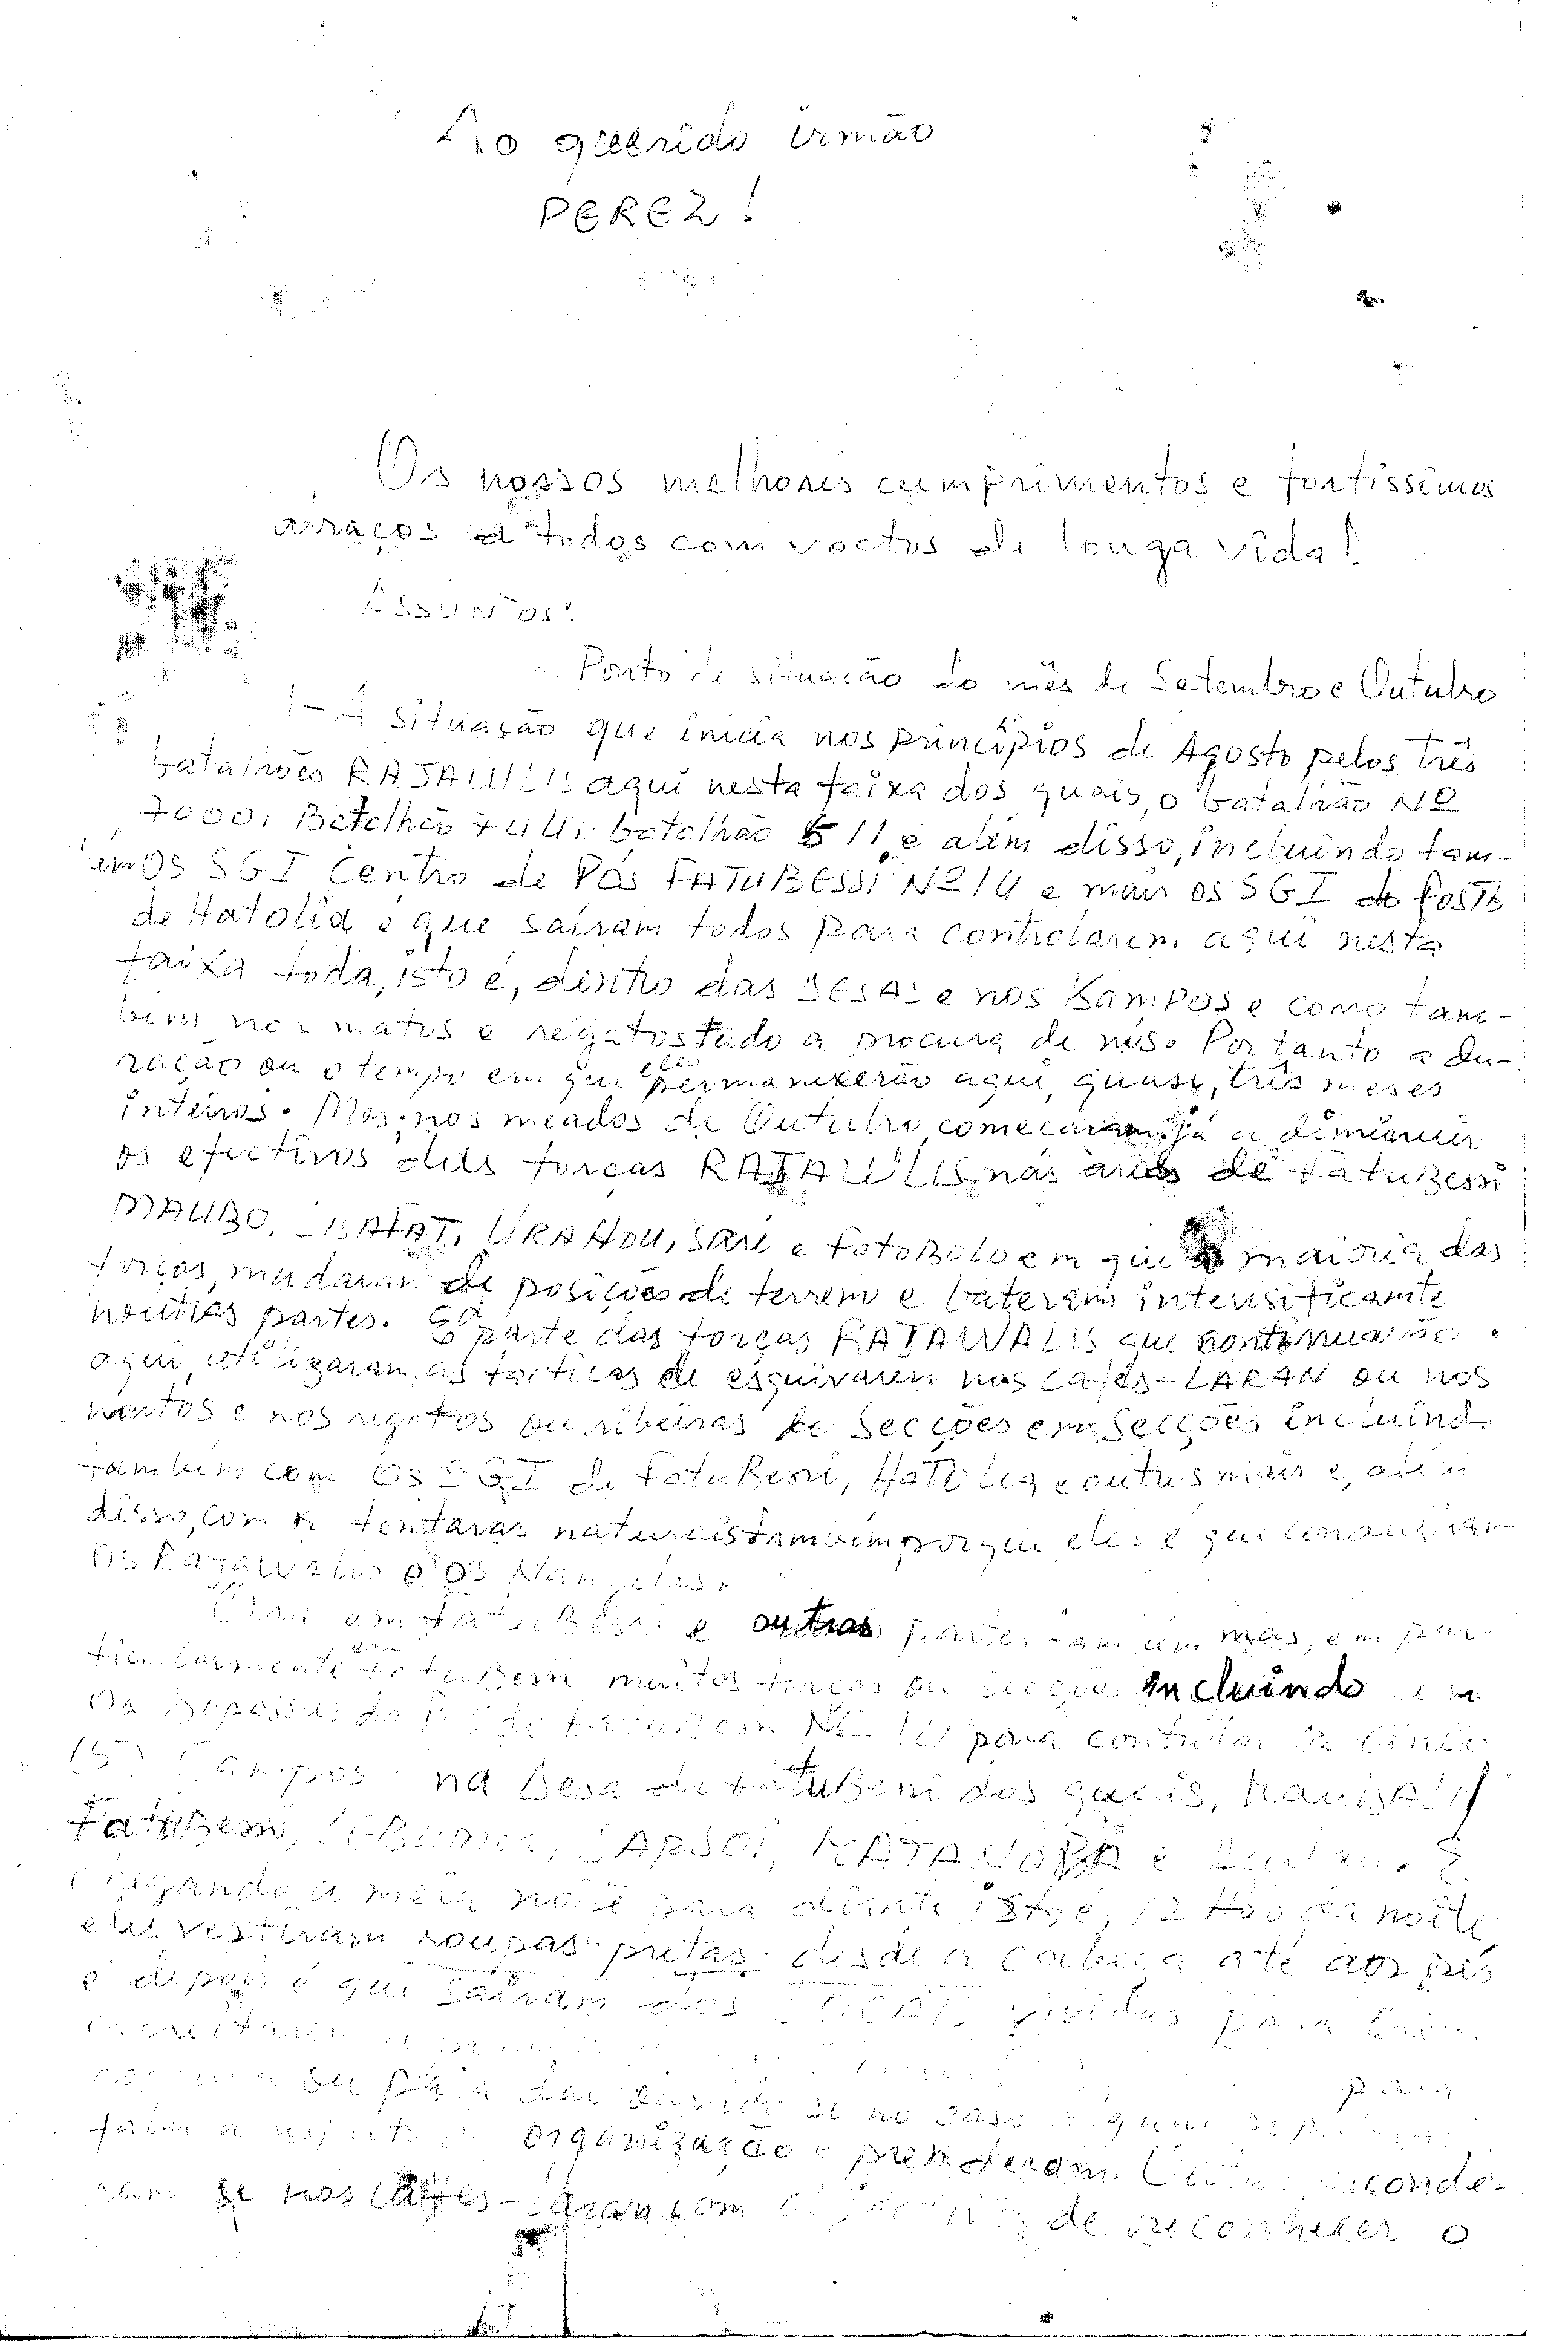 Ao querido irmão
PEREZ!
Os nossos melhores cumprimentos e fortissimos
abraços a todos com voctos de longa vida!
ASSUNTOS:
Ponto de situação do mês de Setembro e Outubro
1- A situação que inicia nos principios de Agosto pelos três
batalhões RAJAWALIS aqui nesta faixa dos quais, o batalhão Nº
7000, Batalhão batalhão 511 e além disso, incluindo tam-
bém os SGI Centro de Pós FATUBESSI Nº 14 e mais os SGI do Posto
de Hatolia é que sairam todos para controlarem aqui nesta
faixa toda, isto é, dentro das DESAS e nos Kampos e como tam-
bém nos matos e regatos tudo a procura de nós. Portanto a du-
ração ou o tempo em que eles permanecerão aqui, quase, três meses
inteiros. Mas, nos meados de Outubro, começaram já a diminuir
os efectivos das forças RAJAWALIS nas areas de FatuBessi
MAUBO, URAHOU, Sare e FatoBolo em que a maioria das
forças, mudaram de posições de terreno e bateram intensificamte
noutras partes. parte das forças RAJAWALIS que continuarão
aqui, utilizaram, as tacticas de esquivarem nos cafés-LARAN ou nos
matos e nos regatos ou ribeiras de Secções em Secções incluindo
também com os SGI de FatuBessi, Hatolia e outros mais e, além
disso, com naturais também porque eles é que conduziram
os Rajawalis e os
em FatuBessi e outras partes também mas, em par-
ticularmente em FatuBessi muitos forças ou secções incluindo com
os do Pós de FatuBessi Nº para controlar os Cinco
(5) Campos na Desa de FatuBessi dos quais,
FatuBessi, e
Chegando a meia noite para diante, isto é, 12 Hoo da noite,
eles vestiram roupas pretas desde a cabeça até aos pés
e depois é que sairam dos LOCAIS para
ou para dar se no caso alguns para
falar a respeito organização e prenderam. esconde-
ram-se nos Cafés-Laran com de reconhecer o